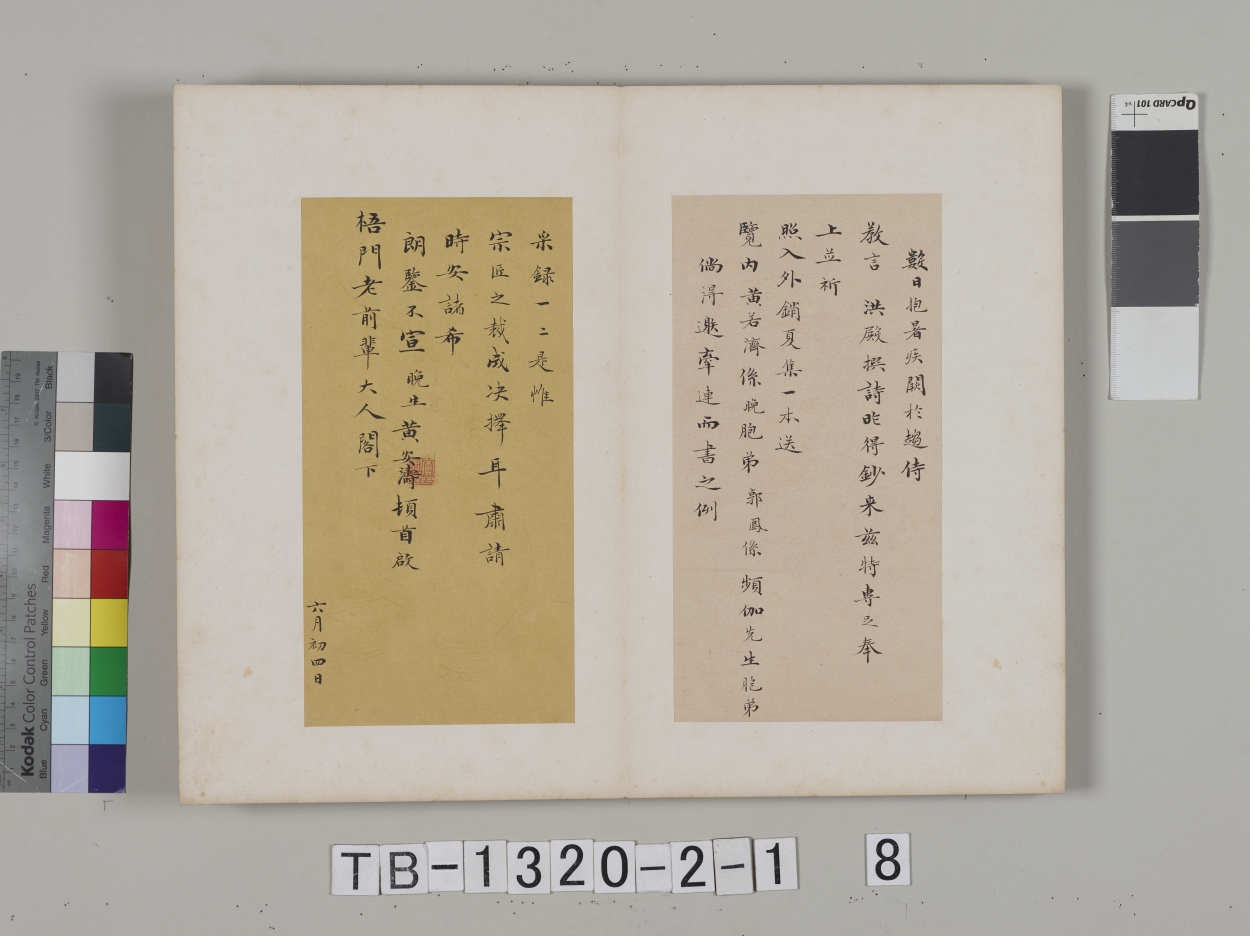 數日抱暑疾闕於趨侍
教言 洪殿撰詩昨得鈔來茲特專足奉
上並祈
照入外銷夏集一本送
覽內黃若濟係晚胞弟 郭鳳係 頻伽先生胞弟
倘得邀牽連而書之例
采録一二是惟
宗匠之裁成決擇耳肅請
時安諸希
朗鑒不宣 晚生黃安濤頓首啟
梧門老前輩大人閣下
六月初四日
TB-1320-2-1 8
QPCARD 101 v4
Kodak Color Control Patches
© Kodak, 2007 TM: Kodak
Blue Cyan Green Yellow Red Magenta White 3/Color Black